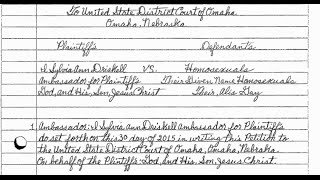 To United State District Court of Omaha
Omaha, Nebraska
Plaintiffs Defendants
I Sylvia Ann Driskell VS. Homosexuals
Ambassador for Plaintiffs Their Given Name Homosexuals
God, and His, Son, Jesus Christ Their, Alis Gay
1 Ambassador: I Sylvia Ann Driskell ambassador for Plaintiffs
do set forth on this 30 day of 2015 in writing this Petition to
the United State District Court of Omaha, Omaha, Nebraska.
On behalf of the Plintiffs: God, and His, Son, Jesus Christ.